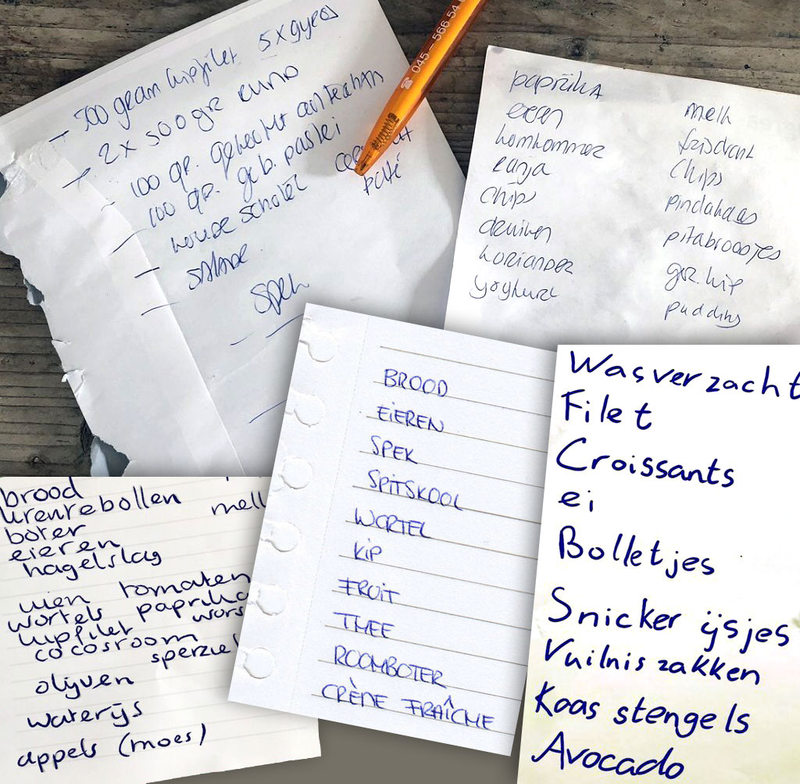 - 500 gram kipfilet 5x gyros
- 2x 500 gr
100 gr. gehecht
- 100 gr. geb. pastei
- house schotel paté
- salade
spek
045-566 54
paprika
eieren
komkommer
ranja
chips
druiven
koriander
yoghurt
melk
fristi
chips
pindakaas
pitabroodjes
ger. kip
pudding
BROOD
EIEREN
SPEK
SPITSKOOL
WORTEL
KIP
FRUIT
THEE
ROOMBOTER
CRÈME FRAÎCHE
brood
krentebollen melk
boter
eieren
hagelslag
uien tomaten
wortels paprika
kipfilet wors
cocosroom
sperziel
olijven
waterijs
appels (moes)
Wasverzacht
Filet
Croissants
ei
Bolletjes
Snicker ijsjes
Vuilnis zakken
Kaas stengels
Avocado